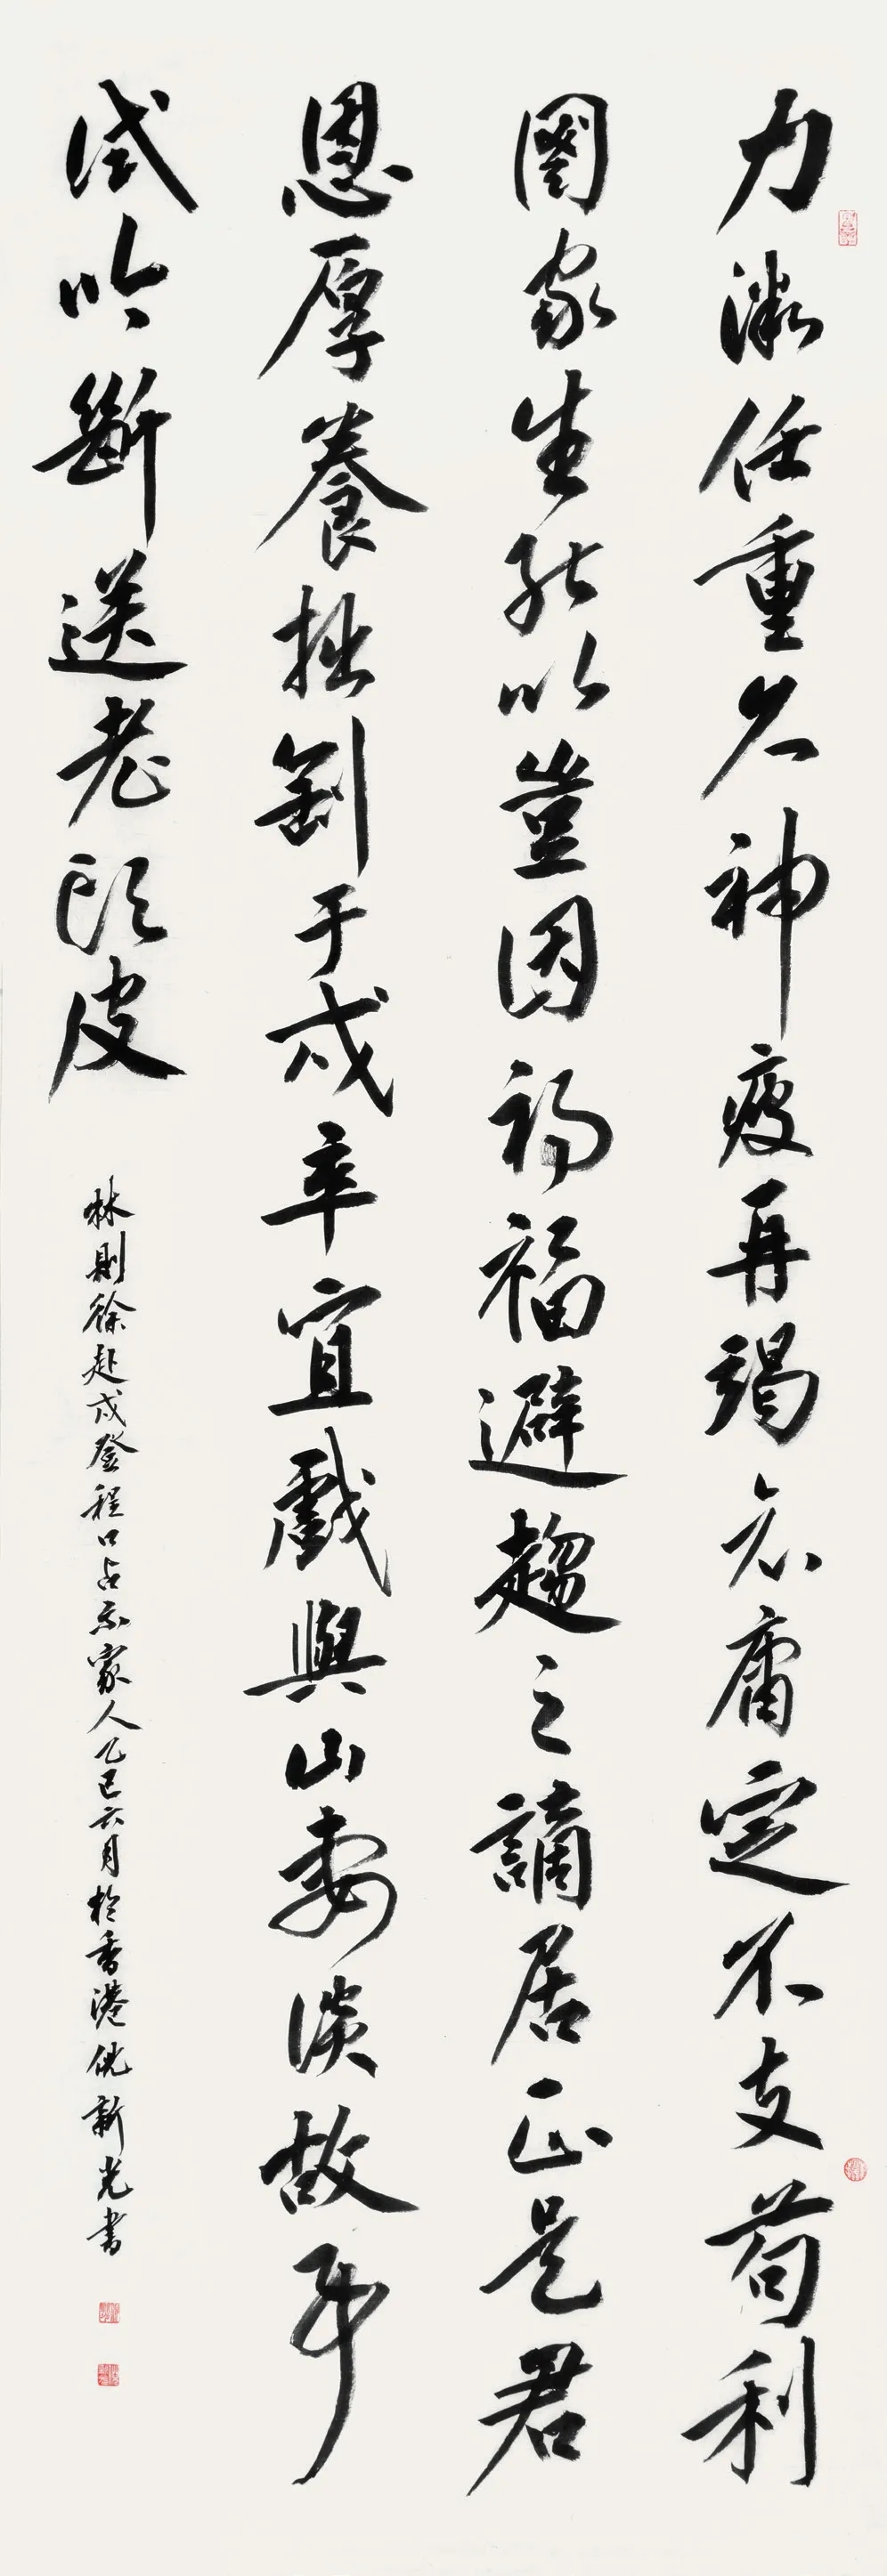 力微任重久神疲再竭衰庸定不支苟利
國家生死以豈因禍福避趨之謫居正是君
恩厚養拙剛于戍卒宜戲與山妻談故事
試吟斷送老頭皮
林則徐赴戍登程口占示家人乙巳六月於香港倪新光書